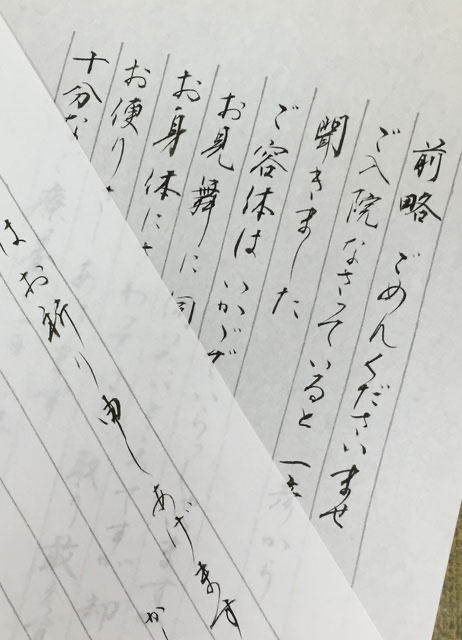 前略 ごめんくださいませ
ご入院なさっていると 一
聞きました
ご容体は いかが
お見舞に伺
お身体に
お便り
十分な
はお祈り申しあげます
か